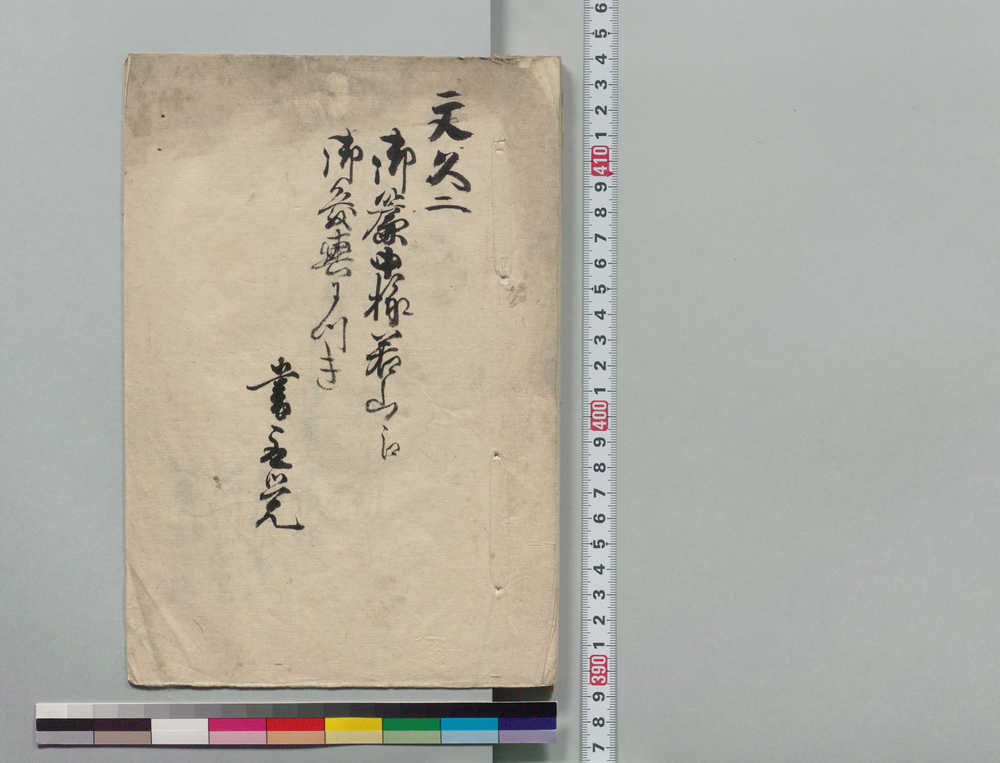 文久二
御簾中様若山江
御発輿ニ付
書至覚
6
5
4
3
2
1
410
9
8
7
6
5
4
3
2
1
400
9
8
7
6
5
4
3
2
1
390
9
8
7